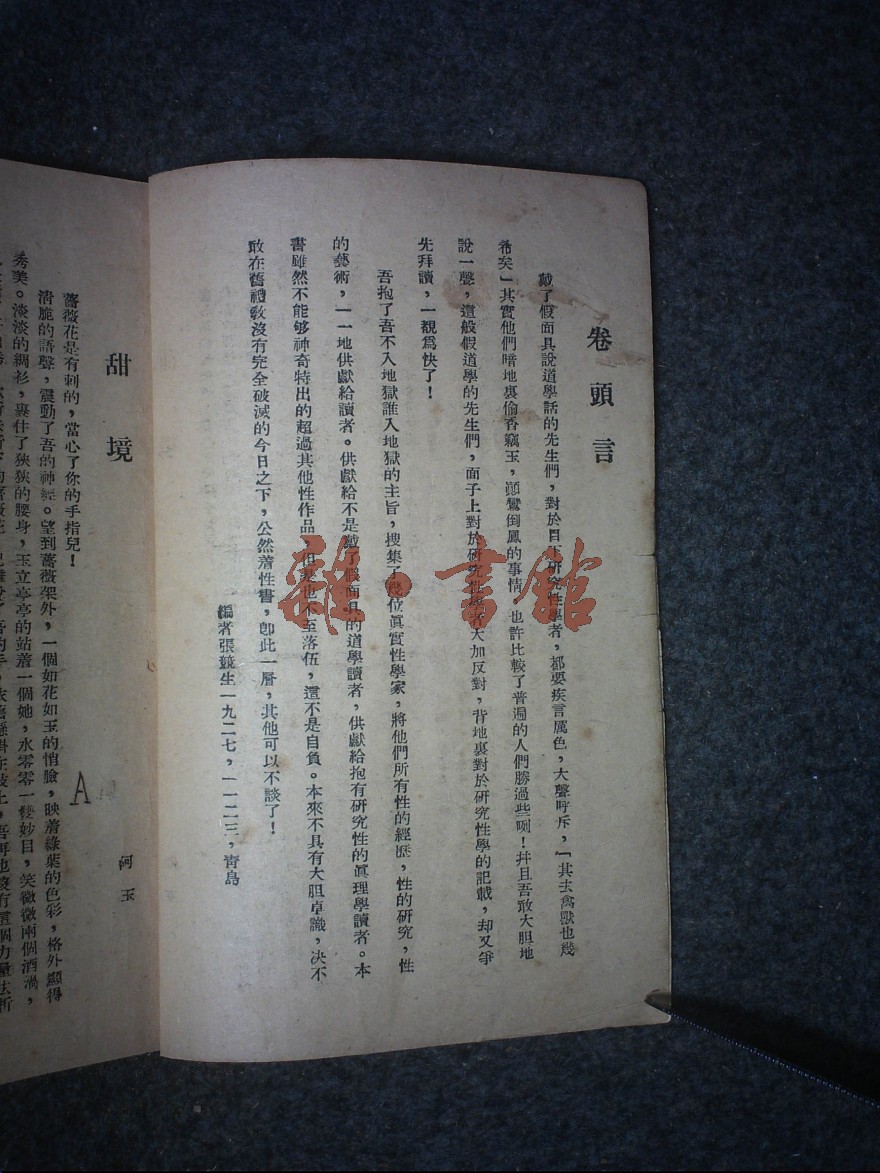 卷頭言
戴了假面具說道學話的先生們，對於目下研究性學者，都要疾言厲色，大聲呼斥，「其去禽獸也幾
希矣」其實他們暗地裏偷香竊玉，顚鸞倒鳳的事情 也許比較了普遍的人們勝過些咧！幷且吾敢大胆地
說一聲，這般假道學的先生們，面子上對於研究性學者大加反對，背地裏對於研究性學的記載，却又爭
先拜讀，一覩爲快了！
吾抱了吾不入地獄誰入地獄的主旨，搜集了幾位眞實性學家，將他們所有性的經歷，性的研究，性
的藝術，一一地供獻給讀者。供獻給不是戴了假面具的道學讀者，供獻給抱有研究性的眞理學讀者。本
書雖然不能够神奇特出的超過其他性作品，但是也不至落伍，這不是自負。本來不具有大胆卓識，决不
敢在舊禮敎沒有完全破滅的今日之下，公然着性書，卽此一層，其他可以不談了！
編者張競生一九二七，一一二三，靑島
甜境
河玉
薔薇花是有刺的，當心了你的手指兒！
淸脆的語聲，震動了吾的神經。望到薔薇架外，一個如花如玉的悄臉，映着綠葉的色彩，格外顯得
秀美。淡淡的綢衫，裹住了狹狹的腰身，玉立亭亭的站着一個她，水零零一雙妙目，笑微微兩個酒渦，
A
雜·書館